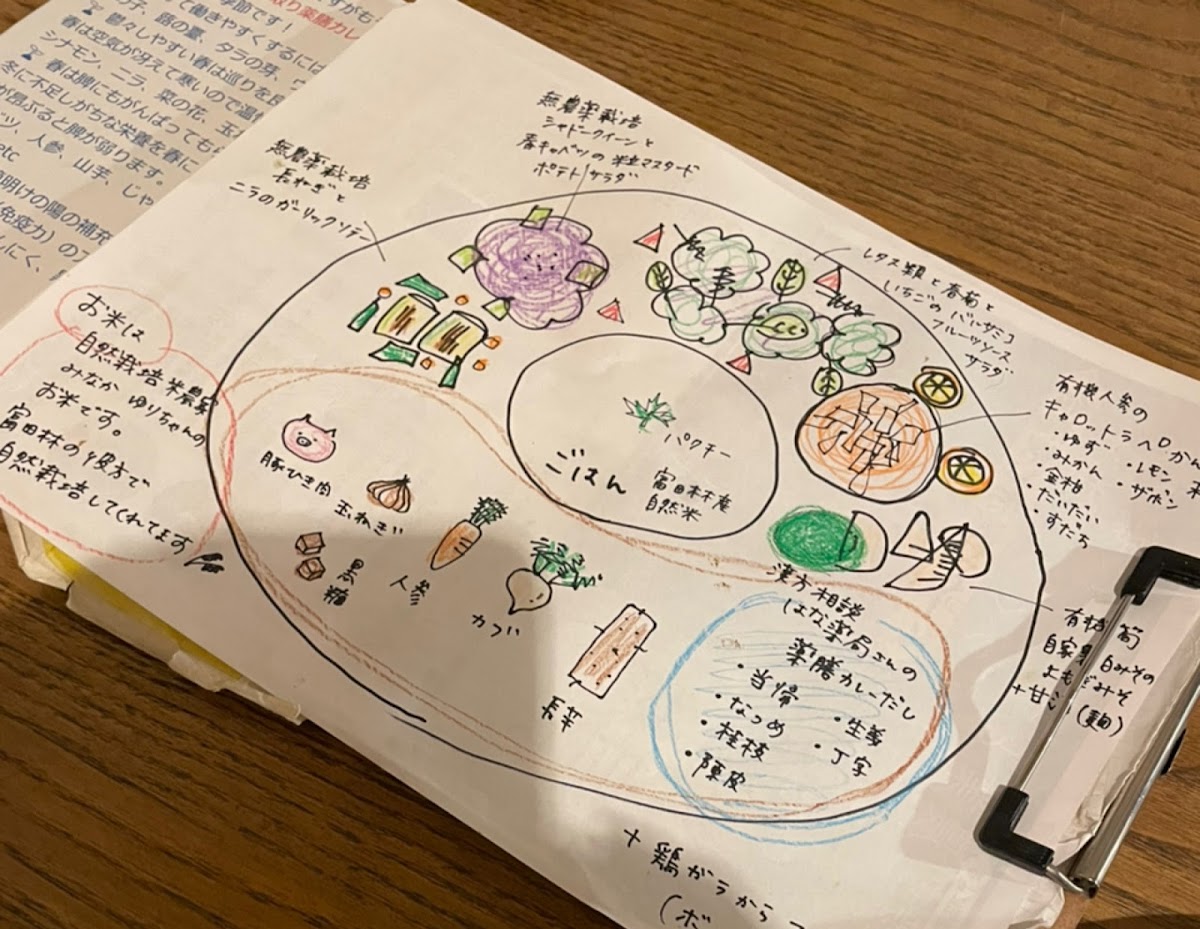 すがも
季節です！
取り薬膳カレ
て働きやすくするには
の子、蕗の薹、タラの芽、
鬱々しやすい春は巡りを良
春は空気が冴えて寒いので温
シナモン、ニラ、菜の花、玉
春は脾にもがんばってもら
冬に不足しがちな栄養を春に
が昂ぶると脾が弱ります。
ツ、人参、山芋、じゃ
etc
明けの陽の補充
（免疫力）の
しにく、
無農薬栽培
シャドークイーンと
春キャベツの粒マスタード
ポテトサラダ
無農薬栽培
長ねぎと
ニラのガーリックソテー
レタス類と春菊と
いちごのバルサミコ
フルーツソース
サラダ
有機人参の
キャロットラペ
・ゆず ・レモン
・みかん ・ザボン
・金柑
・だいだい
・すだち
有機筍
白みその
よもぎみそ
(麹)
お米は
自然栽培米農家
みなか ゆりちゃんの
お米です。
富田林の彼方で
自然栽培してくれてます
パクチー
ごはん
富田林産
自然米
豚ひき肉
玉ねぎ
黒糖
人参
カブ
長芋
漢方相談
はな薬局さんの
薬膳カレーだし
・当帰
・なつめ ・生姜
・桂枝 ・丁字
・陳皮
+ 鶏ガラから
(ボ